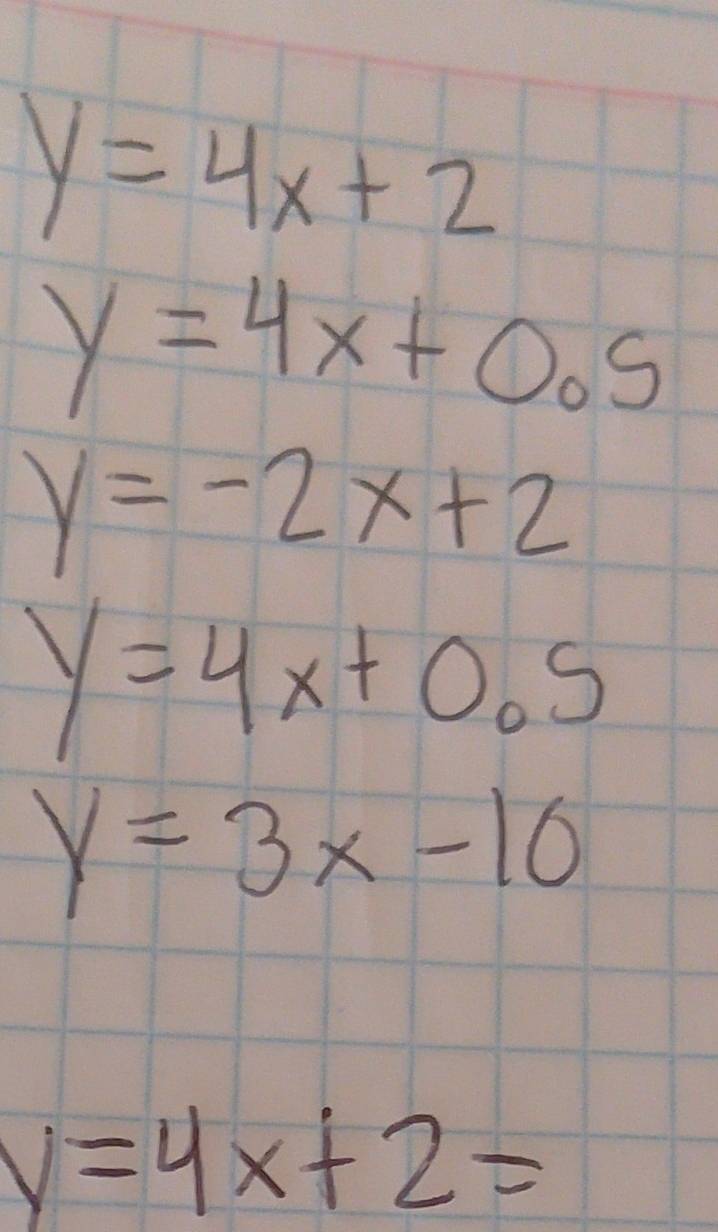 y = 4x + 2
y = 4x + 0.5
y = -2x + 2
y = 4x + 0.5
y = 3x - 10
y = 4x + 2 =